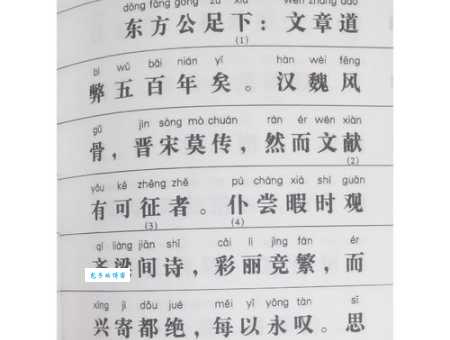 dōng fāng gōng zú xià wén zhāng dào
东方公足下：文章道
(1)
bì wǔ bǎi nián yǐ hàn wèi fēng
弊五百年矣。汉魏风
gǔ jìn sòng mò chuán rán ér wén xiàn
骨，晋宋莫传，然而文献
(2)
yǒu kě zhēng zhě pú cháng xiá shí guān
有可征者。仆尝暇时观
(3) (4)
qí liáng jiān shī cǎi lì jìng fán ér
齐梁间诗，彩丽竞繁，而
xīng jì dōu jué měi yǐ yǒng tàn sī
兴寄都绝，每以永叹。思